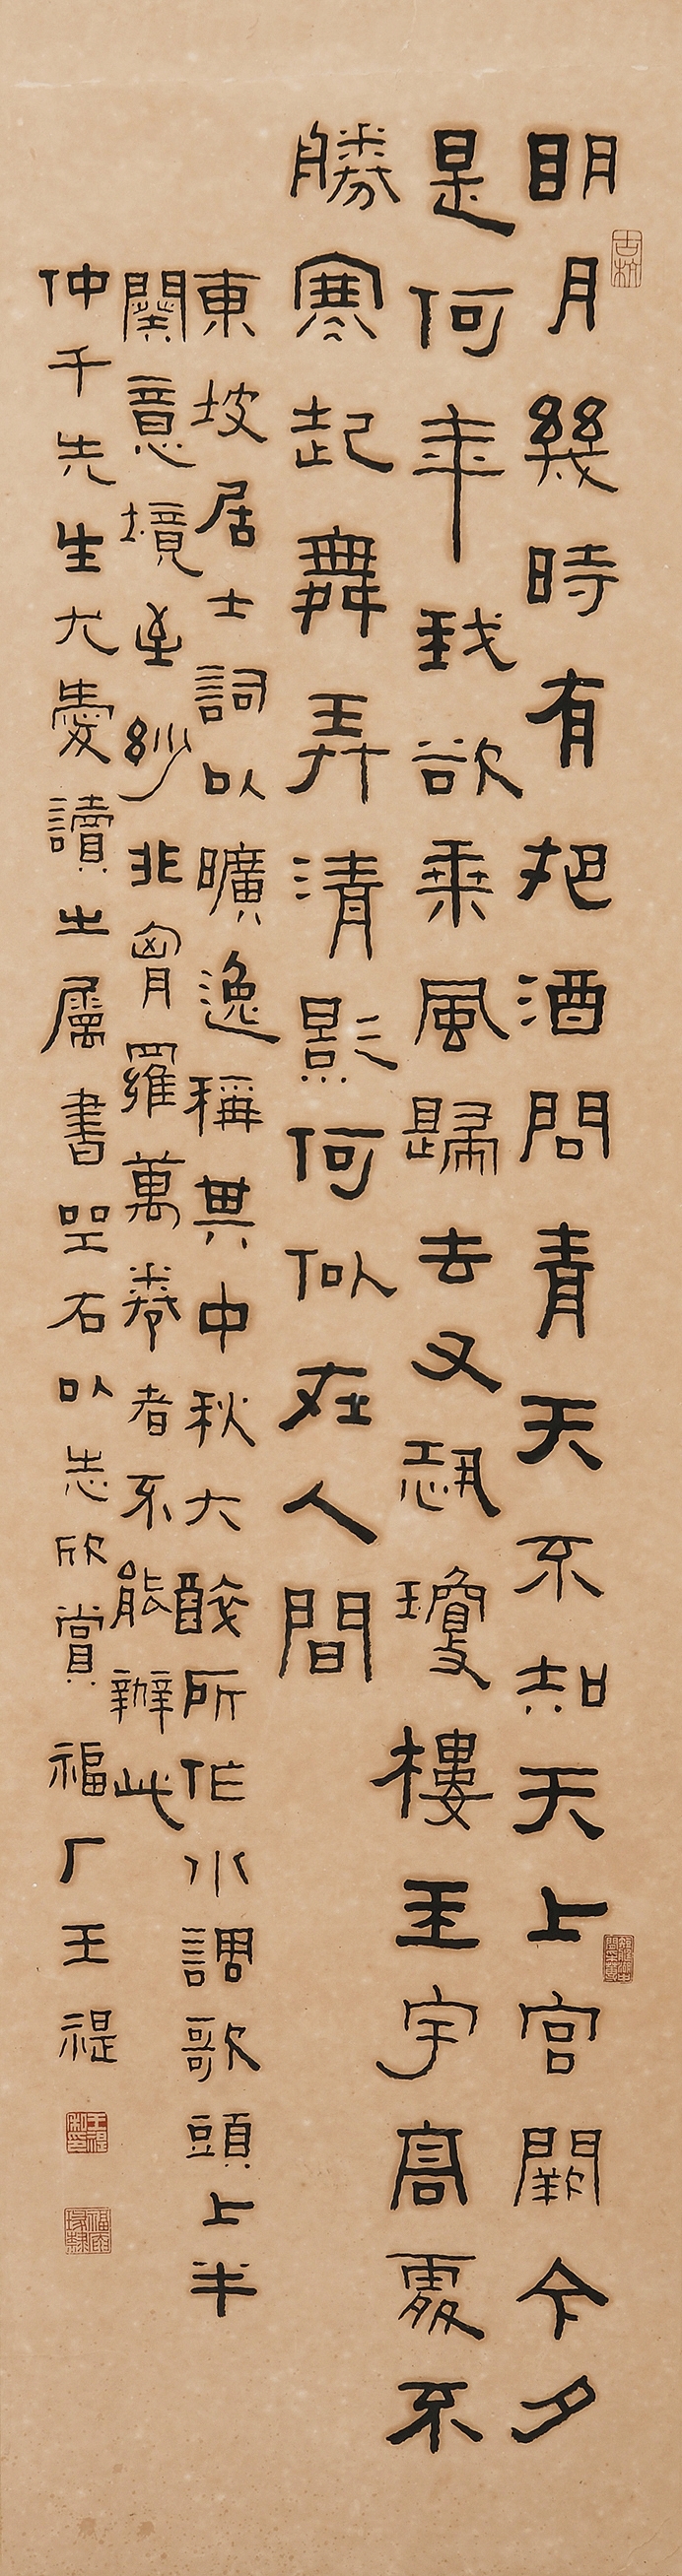 眀月幾時有把酒問青天不知天上宮闕今夕
是何年我欲乘風歸去又恐瓊樓玉宇高處不
勝寒起舞弄清影何似在人間
東坡居士詞以曠逸稱其中秋大醉所作水調歌頭上半
闋意境至妙非胷羅萬卷者不能辦此
仲千先生尤愛讀之屬書坐右以志欣賞福厂王禔
古杭
王禔私印